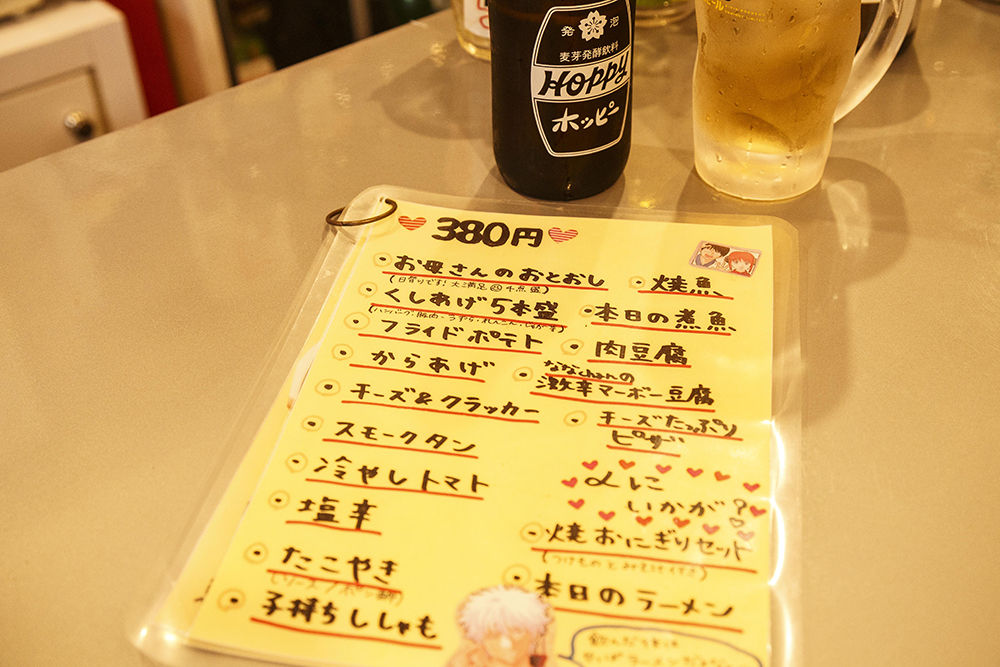 発泡
麦芽発酵飲料
HOPPY
ホッピー
380円
お母さんのおとおし
くしあげ5本盛
フライドポテト
からあげ
チーズ&クラッカー
スモークタン
冷やしトマト
塩辛
たこやき
子持ちししゃも
焼魚
本日の煮魚
肉豆腐
ななchanの
激辛マーボー豆腐
チーズたっぷり
ピザ
〆に
いかが?
焼おにぎりセット
本日のラーメン